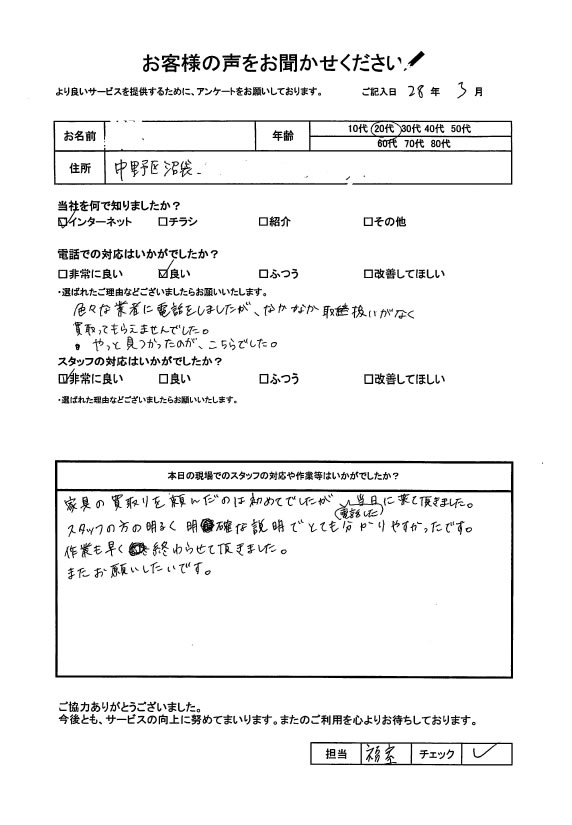 お客様の声をお聞かせください
より良いサービスを提供するために、アンケートをお願いしております。 ご記入日 28 年 3 月
お名前 年齢 10代 20代 30代 40代 50代
60代 70代 80代
住所 中野区沼袋
当社を何で知りましたか？
☑インターネット □チラシ □紹介 □その他
電話での対応はいかがでしたか？
□非常に良い ☑良い □ふつう □改善してほしい
・選ばれたご理由などございましたらお願いいたします。
色々な業者に電話をしましたが、なかなか取り扱いがなく
買取ってもらえませんでした。
やっと見つかったのが、こちらでした。
スタッフの対応はいかがでしたか？
☑非常に良い □良い □ふつう □改善してほしい
・選ばれた理由などございましたらお願いいたします。
本日の現場でのスタッフの対応や作業等はいかがでしたか？
家具の買取りを頼んだのは初めてでしたが 電話した 当日に来て頂きました。
スタッフの方の明るく明確な説明でとても分かりやすかったです。
作業も早く終わらせて頂きました。
またお願いしたいです。
ご協力ありがとうございました。
今後とも、サービスの向上に努めてまいります。またのご利用を心よりお待ちしております。
担当 チェック ✓